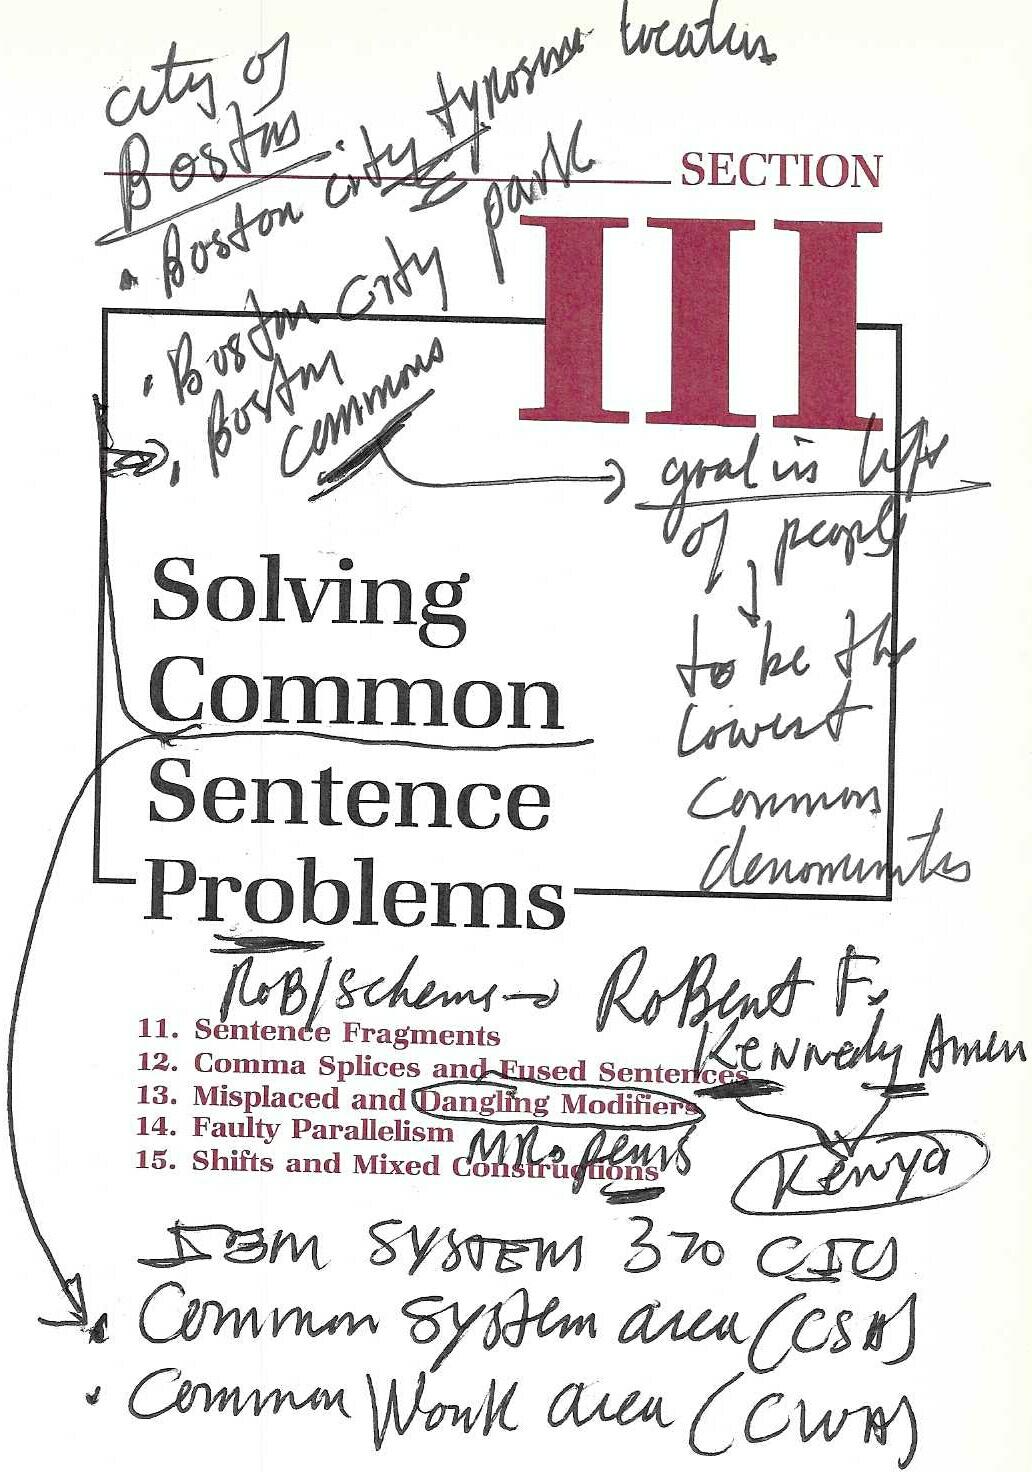 city of
Boston
• Boston city
• Boston City park
• Boston
commons
SECTION
III
goal in life
of people
to be the
lowest
common
Solving
Common
Sentence
Problems
ROB/Scheme → RoBert F.
Kennedy
Kenya
11. Sentence Fragments
12. Comma Splices and Fused Sentences
13. Misplaced and Dangling Modifiers
14. Faulty Parallelism
15. Shifts and Mixed Constructions
IBM SYSTEM 370 CICS
• Common System area (CSA)
• Common Work area (CWA)